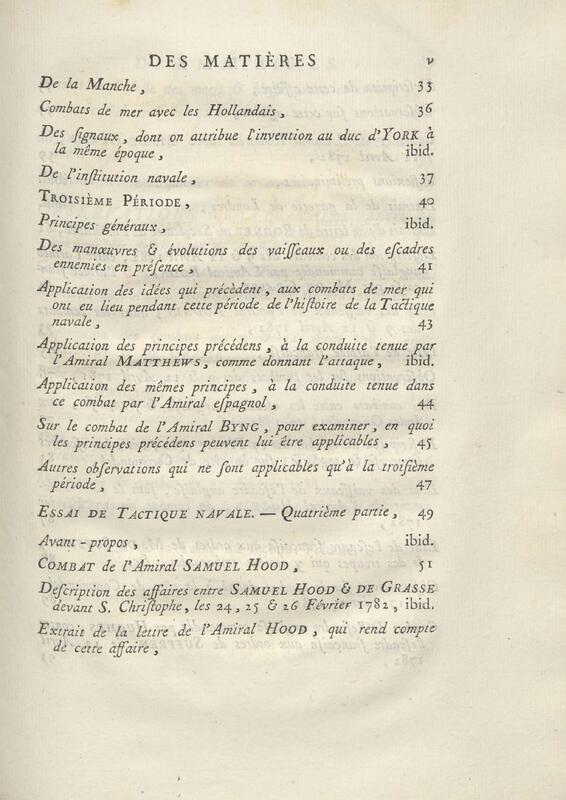 DES MATIÈRES v
De la Manche, 33
Combats de mer avec les Hollandais, 36
Des ſignaux, dont on attribue l'invention au duc d'YORK à
la même époque, ibid.
De l'inſtitution navale, 37
TROISIÈME PÉRIODE, 40
Principes généraux, ibid.
Des manœuvres & évolutions des vaiſſeaux ou des eſcadres
ennemies en préſence, 41
Application des idées qui précèdent, aux combats de mer qui
ont eu lieu pendant cette période de l'hiſtoire de la Tactique
navale, 43
Application des principes précédens, à la conduite tenue par
l'Amiral MATTHEWS, comme donnant l'attaque, ibid.
Application des mêmes principes, à la conduite tenue dans
ce combat par l'Amiral eſpagnol, 44
Sur le combat de l'Amiral BYNG, pour examiner, en quoi
les principes précédens peuvent lui être applicables, 45
Autres obſervations qui ne ſont applicables qu'à la troiſième
période, 47
ESSAI DE TACTIQUE NAVALE. — Quatrième partie, 49
Avant-propos, ibid.
COMBAT de l'Amiral SAMUEL HOOD, 51
Deſcription des affaires entre SAMUEL HOOD & DE GRASSE
devant S. Chriſtophe, les 24, 25 & 26 Février 1782, ibid.
Extrait de la lettre de l'Amiral HOOD, qui rend compte
de cette affaire,